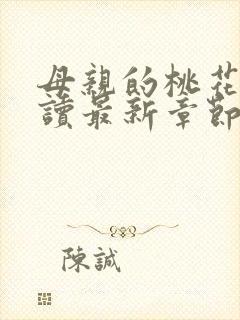 母親的桃花
讀最新章節
陳誠